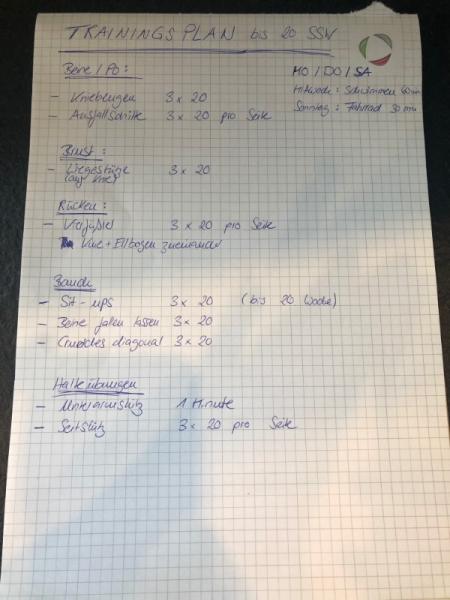 TRAININGSPLAN bis 20 SSW
MO / DO / SA
Mittwoch : Schwimmen 60 min
Sonntag : Fahrrad 30 min
Beine / Po :
- Kniebeugen 3 x 20
- Ausfallschritte 3 x 20 pro Seite
Brust :
- Liegestütze 3 x 20
(auf Knie)
Rücken :
- Vierfüßler 3 x 20 pro Seite
Knie + Ellbogen zueinander
Bauch
- Sit - ups 3 x 20 (bis 20 Woche)
- Beine fallen lassen 3 x 20
- Crunches diagonal 3 x 20
Halteübungen
- Unterarmstütz 1 Minute
- Seitstütz 3 x 20 pro Seite